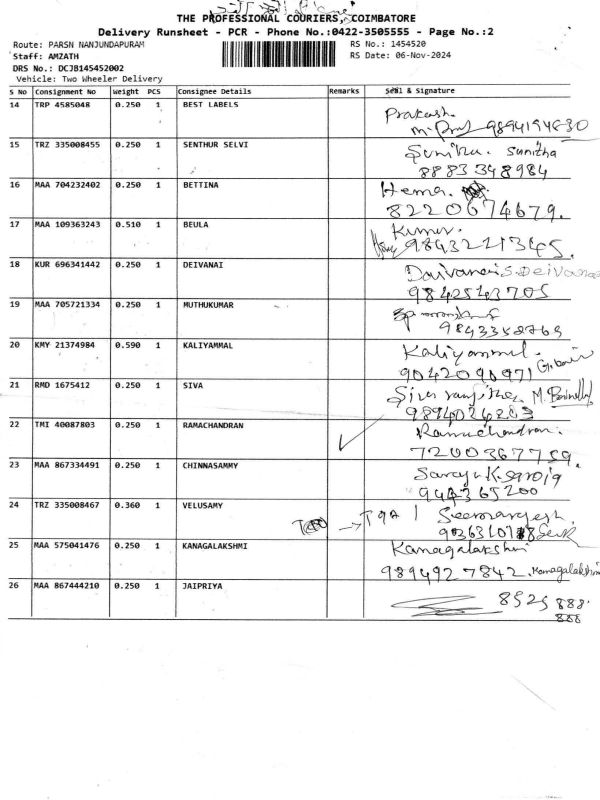 THE PROFESSIONAL COURIERS, COIMBATORE
Delivery Runsheet - PCR - Phone No.:0422-3505555 - Page No.:2
Route: PARSN NANJUNDAPURAM
RS No.: 1454520
Staff: AMZATH
RS Date: 06-Nov-2024
DRS No.: DCJB145452002
Vehicle: Two Wheeler Delivery
S No Consignment No Weight PCS Consignee Details Remarks Seal & Signature
14 TRP 4585048 0.250 1 BEST LABELS Prakash
9894194830
15 TRZ 335008455 0.250 1 SENTHUR SELVI Sunitha. Sunitha
8883348984
16 MAA 704232402 0.250 1 BETTINA Hema.
8220674679.
17 MAA 109363243 0.510 1 BEULA Kumar
9843221345.
18 KUR 696341442 0.250 1 DEIVANAI Daivanai S. Deivana
9842543705
19 MAA 705721334 0.250 1 MUTHUKUMAR
9843358769
20 KMY 21374984 0.590 1 KALIYAMMAL Kaliyammal.
9042090971
21 RMD 1675412 0.250 1 SIVA
9894024283
22 TMI 40087803 0.250 1 RAMACHANDRAN Ramachandran.
7200367759.
23 MAA 867334491 0.250 1 CHINNASAMMY Sarayu K. Saroja
944365200
24 TRZ 335008467 0.360 1 VELUSAMY
25 MAA 575041476 0.250 1 KANAGALAKSHMI Kanagalakshmi
9894927842. Kanagalakshmi
26 MAA 867444210 0.250 1 JAIPRIYA 8525 888
888